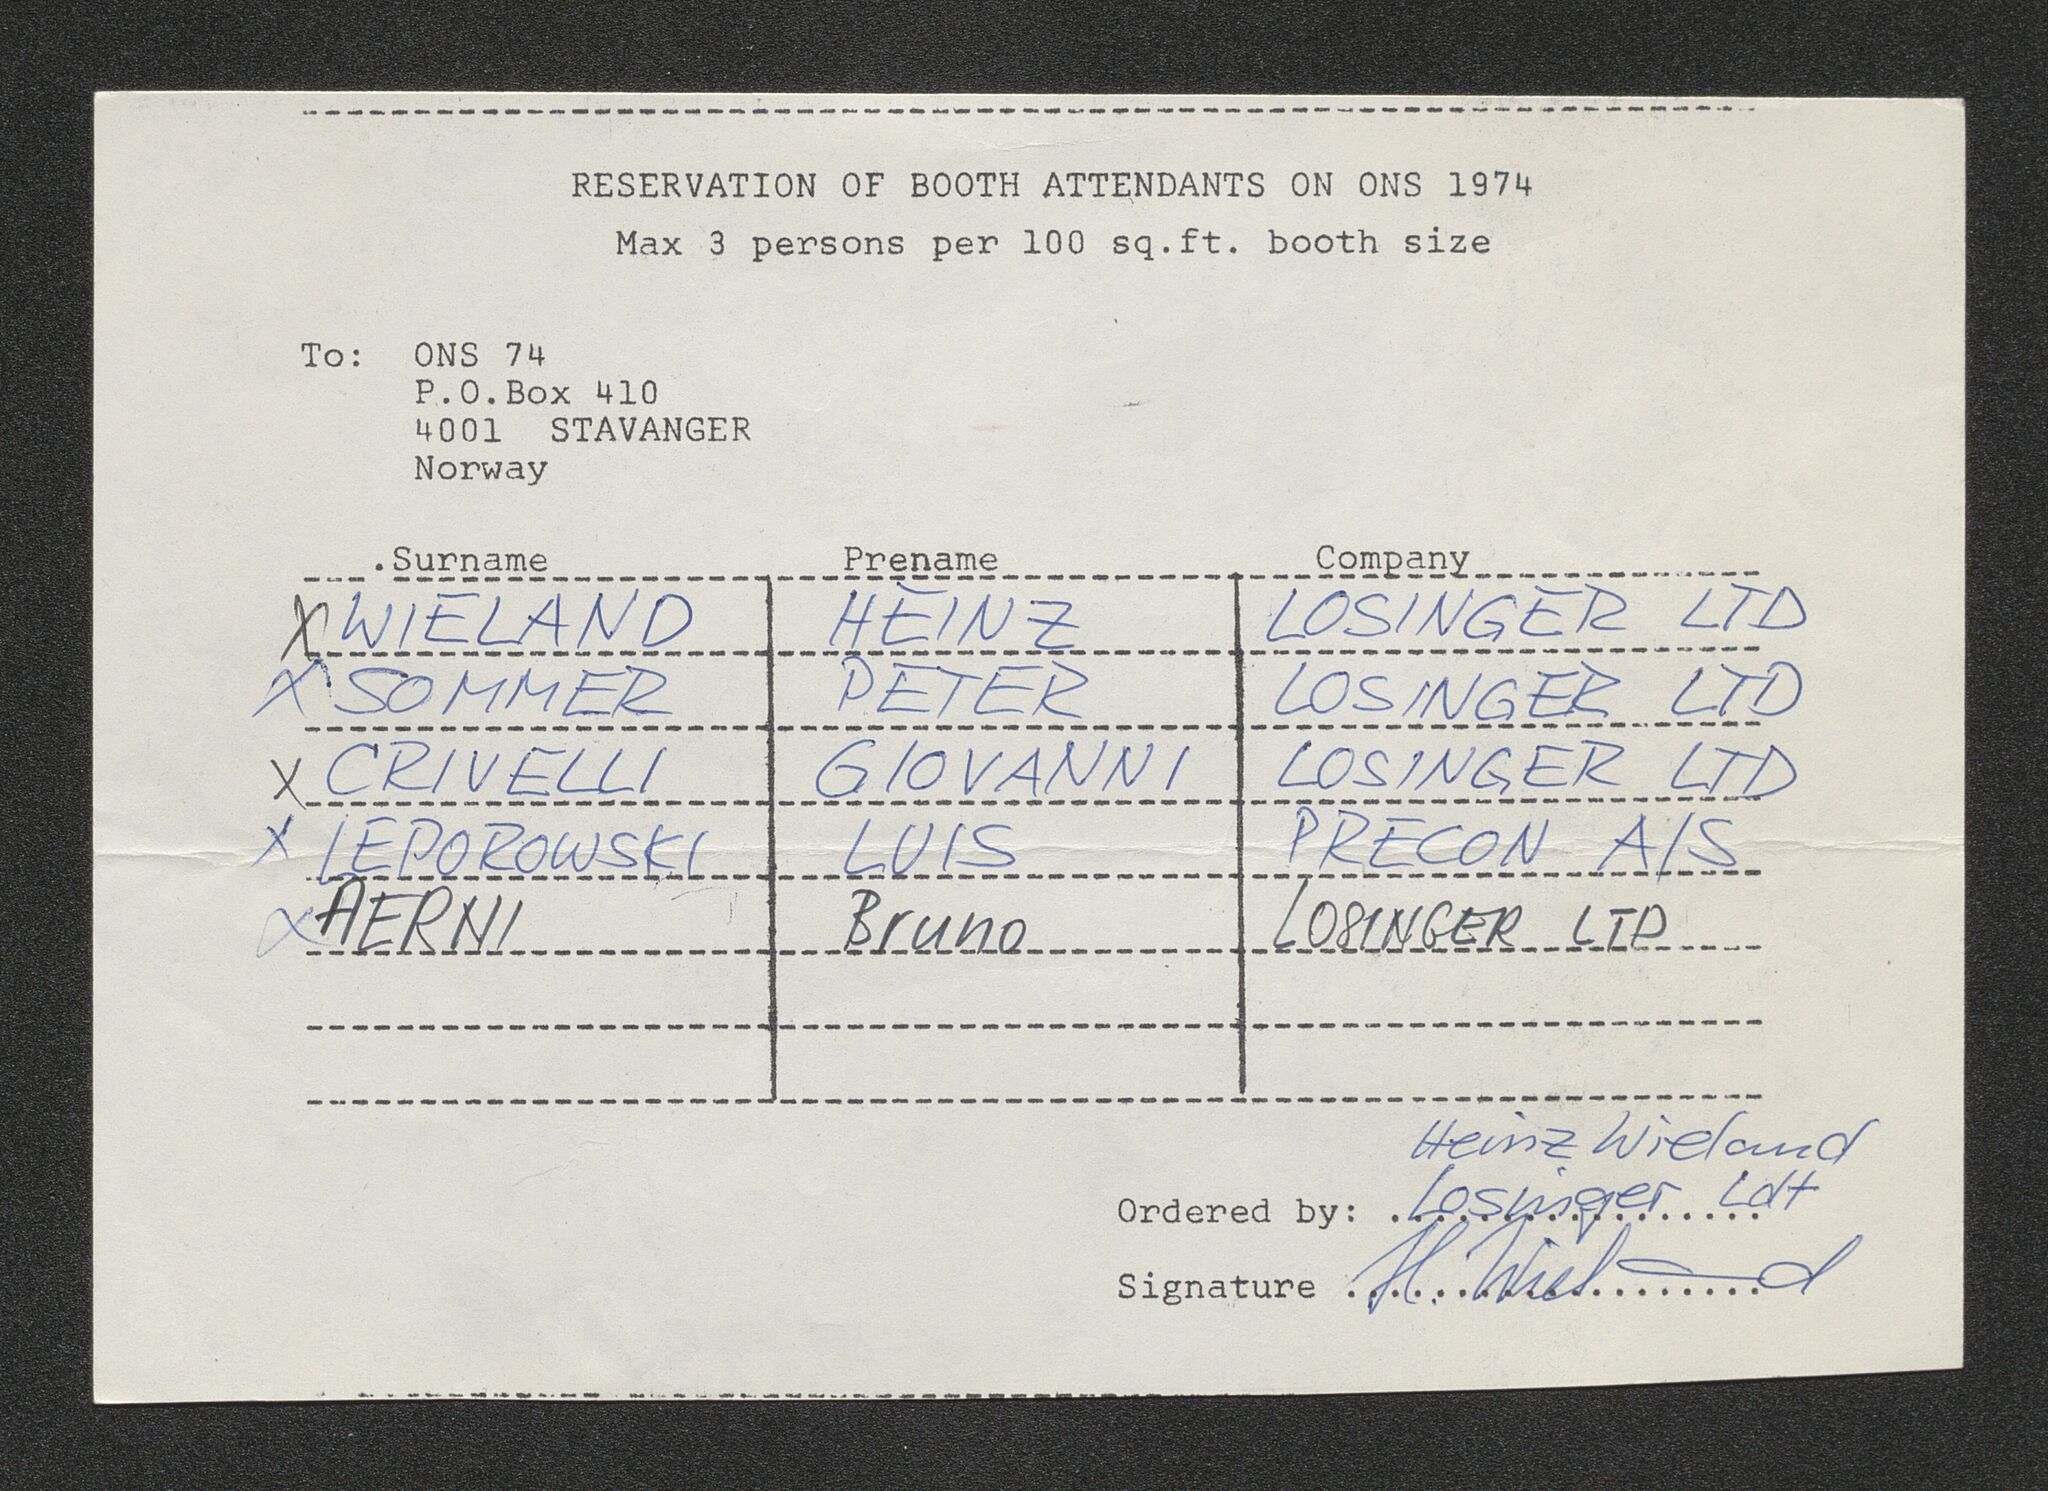 RESERVATION OF BOOTH ATTENDANTS ON ONS 1974
Max 3 persons per 100 sq.ft. booth size
To: ONS 74
P.O.Box 410
4001 STAVANGER
Norway
.Surname Prename Company
X WIELAND HEINZ LOSINGER LTD
X SOMMER PETER LOSINGER LTD
X CRIVELLI GIOVANNI LOSINGER LTD
X LEPOROWSKI LUIS PRECON A/S
X AERNI Bruno LOSINGER LTD
Heinz Wieland
Ordered by: Losinger Ldt
Signature H. Wieland